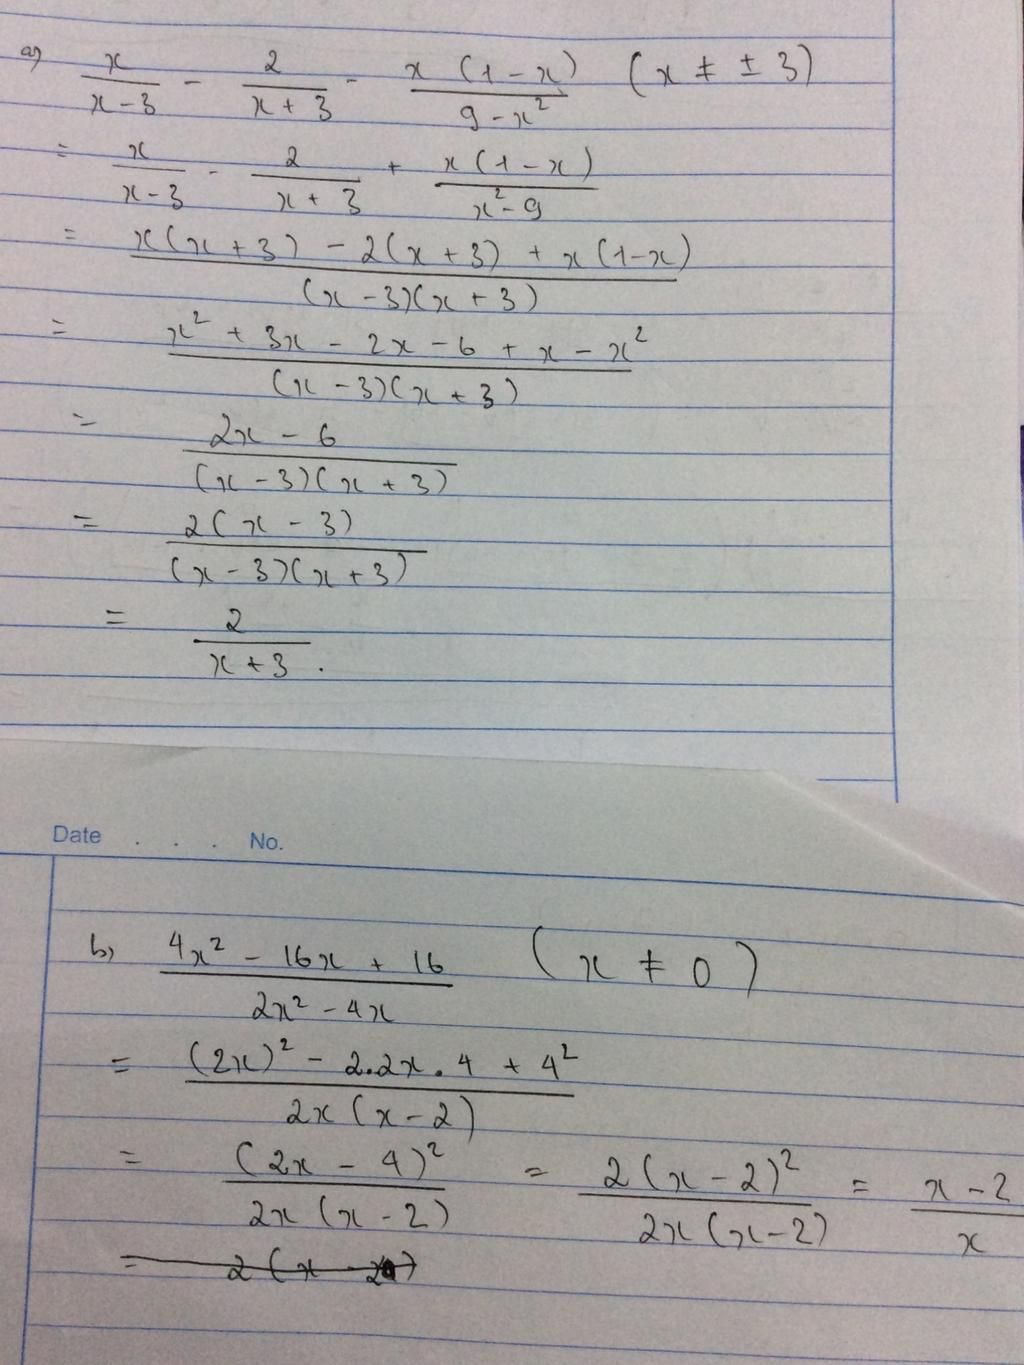 a) x/(x - 3) - 2/(x + 3) - x(1 - x)/(9 - x²) (x ≠ ± 3)
= x/(x - 3) - 2/(x + 3) + x(1 - x)/(x² - 9)
= (x(x + 3) - 2(x + 3) + x(1 - x))/((x - 3)(x + 3))
= (x² + 3x - 2x - 6 + x - x²)/((x - 3)(x + 3))
= (2x - 6)/((x - 3)(x + 3))
= 2(x - 3)/((x - 3)(x + 3))
= 2/(x + 3).
Date . . . No.
b) (4x² - 16x + 16)/(2x² - 4x) (x ≠ 0)
= ((2x)² - 2.2x.4 + 4²)/(2x(x - 2))
= (2x - 4)²/(2x(x - 2)) = 2(x - 2)²/(2x(x - 2)) = (x - 2)/x